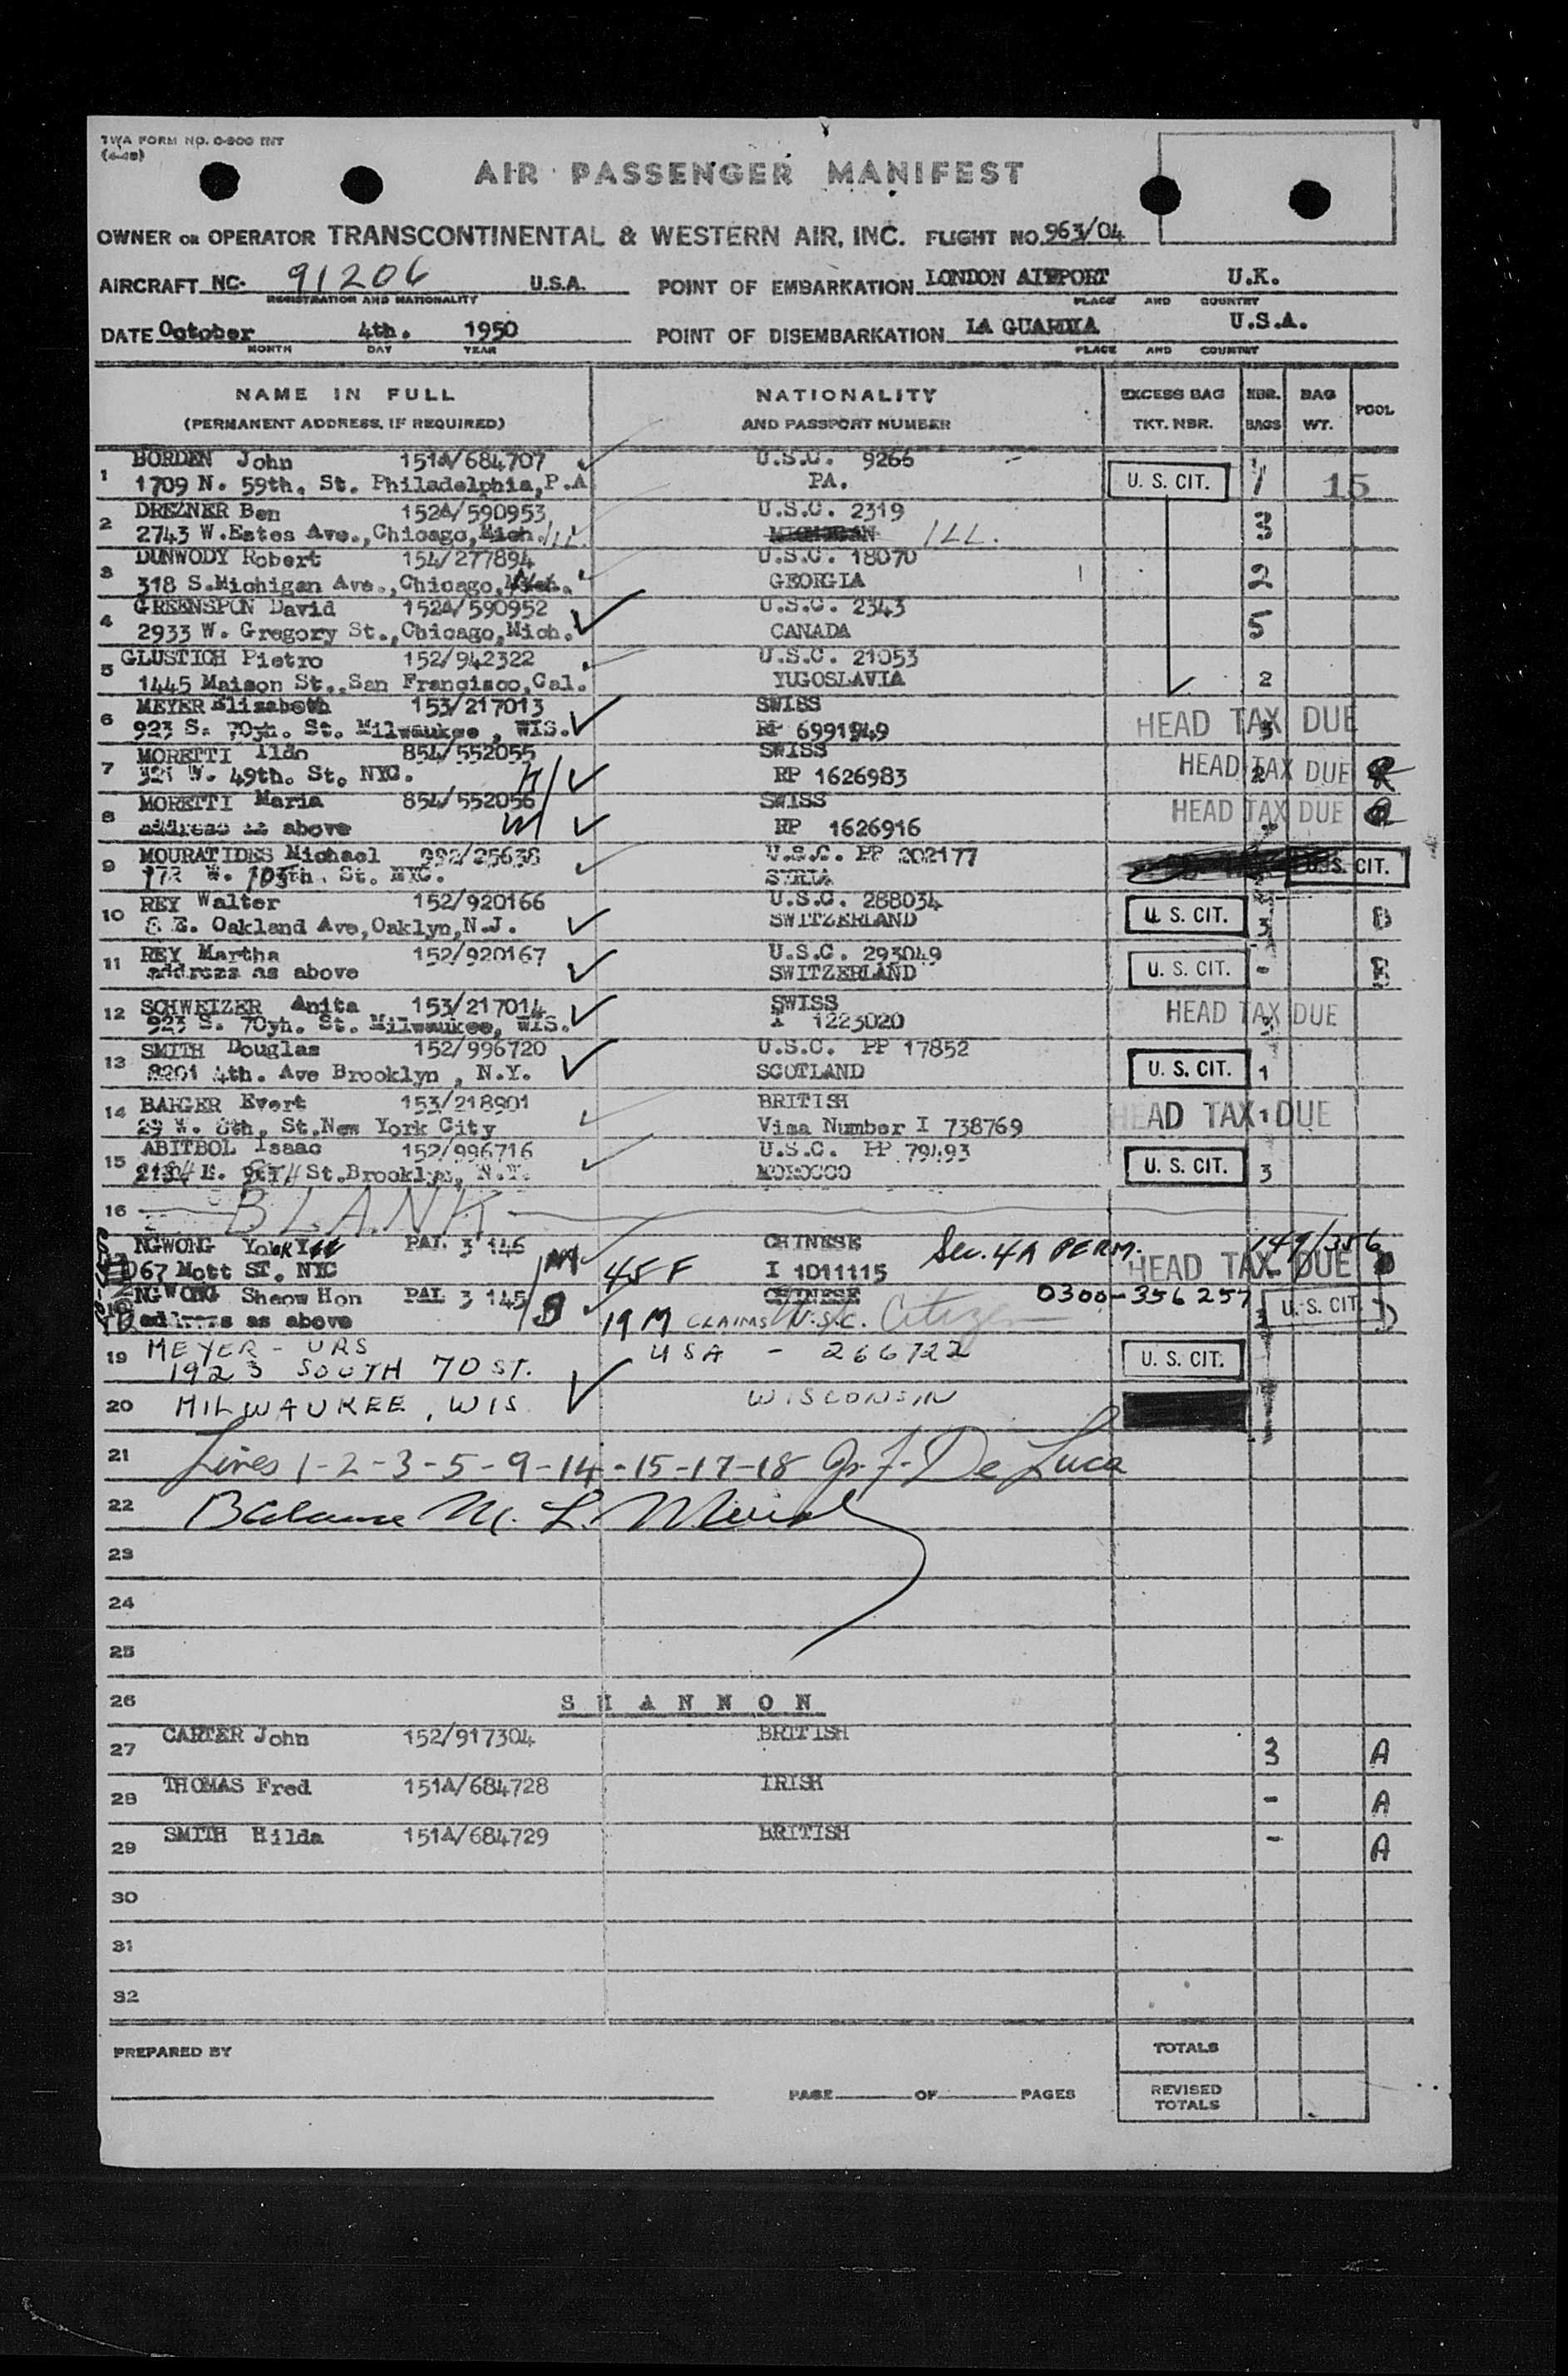 TWA FORM NO. 0-800 INT
(4-48)
AIR PASSENGER MANIFEST
OWNER OR OPERATOR TRANSCONTINENTAL & WESTERN AIR, INC. FLIGHT NO. 963/04
AIRCRAFT NC. 91206 U.S.A. POINT OF EMBARKATION LONDON AIRPORT U.K.
REGISTRATION AND NATIONALITY PLACE AND COUNTRY
DATE October 4th. 1950 POINT OF DISEMBARKATION LA GUARDIA U.S.A.
MONTH DAY YEAR PLACE AND COUNTRY
NAME IN FULL NATIONALITY EXCESS BAG NBR. BAG POOL
(PERMANENT ADDRESS, IF REQUIRED) AND PASSPORT NUMBER TKT. NBR. BAGS WT.
1 BORDEN John 151A/684707 U.S.C. 9266
1709 N. 59th. St. Philadelphia, P.A PA. U. S. CIT. 1 15
2 DREZNER Ben 152A/590953 U.S.C. 2319
2743 W.Estes Ave.,Chicago,Mich. ILL. MICHIGAN ILL. 3
3 DUNWODY Robert 154/277894 U.S.C. 18070
318 S.Michigan Ave.,Chicago, GEORGIA 2
4 GREENSPON David 152A/590952 U.S.C. 2343
2933 W. Gregory St.,Chicago,Mich. CANADA 5
5 GLUSTICH Pietro 152/942322 U.S.C. 21053
1445 Maison St.,San Francisco,Cal. YUGOSLAVIA 2
6 MEYER Elisabeth 153/217013 SWISS
923 S. 70yh. St. Milwaukee, WIS. RP 6991949 HEAD TAX DUE 3
7 MORETTI Ildo 854/552055 SWISS
321 W. 49th. St. NYC. H RP 1626983 HEAD TAX DUE 2
8 MORETTI Maria 854/552056 SWISS
address as above W RP 1626916 HEAD TAX DUE -
9 MOURATIDES Michael 992/25638 U.S.C. PP 202177
172 W. 105th. St. NYC. SYRIA U.S. CIT.
10 REY Walter 152/920166 U.S.C. 288034
8 E. Oakland Ave,Oaklyn,N.J. SWITZERLAND U. S. CIT. 3 B
11 REY Martha 152/920167 U.S.C. 293049
address as above SWITZERLAND U. S. CIT. - B
12 SCHWEIZER Anita 153/217014 SWISS
923 S. 70yh. St. Milwaukee, WIS. I 1223020 HEAD TAX DUE
13 SMITH Douglas 152/996720 U.S.C. PP 17852
8201 4th. Ave Brooklyn, N.Y. SCOTLAND U. S. CIT. 1
14 BARGER Evert 153/218901 BRITISH
29 W. 8th. St.New York City Visa Number I 738769 HEAD TAX DUE 1
15 ABITBOL Isaac 152/996716 U.S.C. PP 79493
St.Brooklyn, N.Y. MOROCCO U. S. CIT. 3
16 BLANK
NGWONG York PAL 3 146 M CHINESE Sec. 4A PERM. 149/356
67 Mott ST. NYC 45 F I 1011115 HEAD TAX DUE
NGWONG Sheow Hon PAL 3 145 CHINESE 0300-356257 U. S. CIT.
address as above 19 M CLAIMS U.S.C. Citizen
19 MEYER - URS USA - 266722
1923 SOUTH 70 ST. U. S. CIT.
20 MILWAUKEE, WIS WISCONSIN
21 Lines 1-2-3-5-9-14-15-17-18 De Luca
22 Balance M. L.
23
24
25
26 SHANNON
27 CARTER John 152/917304 BRITISH 3 A
28 THOMAS Fred 151A/684728 IRISH - A
29 SMITH Hilda 151A/684729 BRITISH - A
30
31
32
PREPARED BY TOTALS
PAGE OF PAGES REVISED
TOTALS